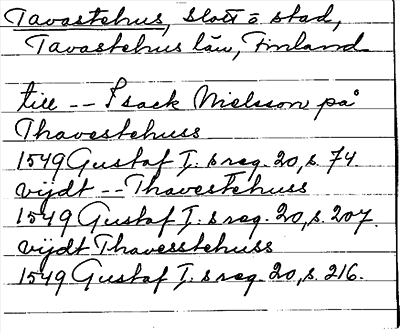 Tavastehus, slott o stad,
Tavastehus län, Finland
till -- Isack Nielsson på
Thavestehuss
1549 Gustaf I:s reg. 20, s. 74.
vijdt -- Thavestehuss
1549 Gustaf I:s reg. 20, s. 207.
vijdt Thavesstehuss
1549 Gustaf I:s reg. 20, s. 216.